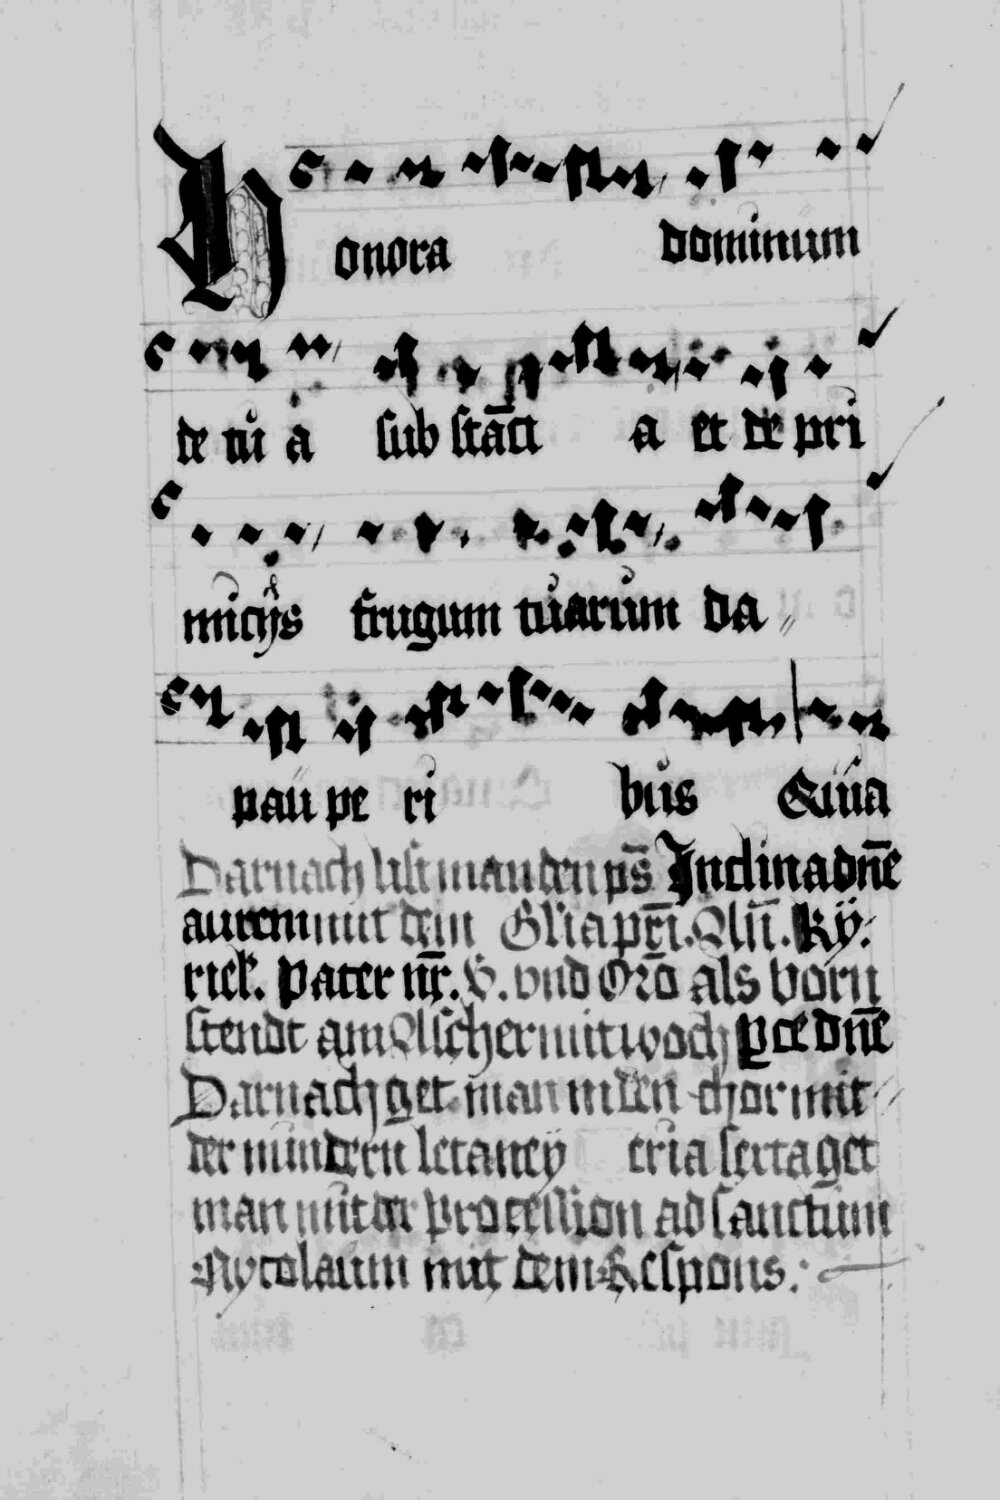 Honora dominum
de tu a sub stāci a et de pri
micijs frugum tuarum da
pau pe ri bus Quia
Darnach list man den ps̄ Inclina dn̄e
aurem mit dem Gl'ia pr̄i. Aun̄. Kÿ:
riel. Pater nr̄. V. vnd Orō als vorn
stendt am Aschermitwoch Pce dn̄e
Darnach get man in den chor mit
der mindern letaneÿ eria sexta get
man mit der procession ad sanctum
Nycolaum mit dem Respons.